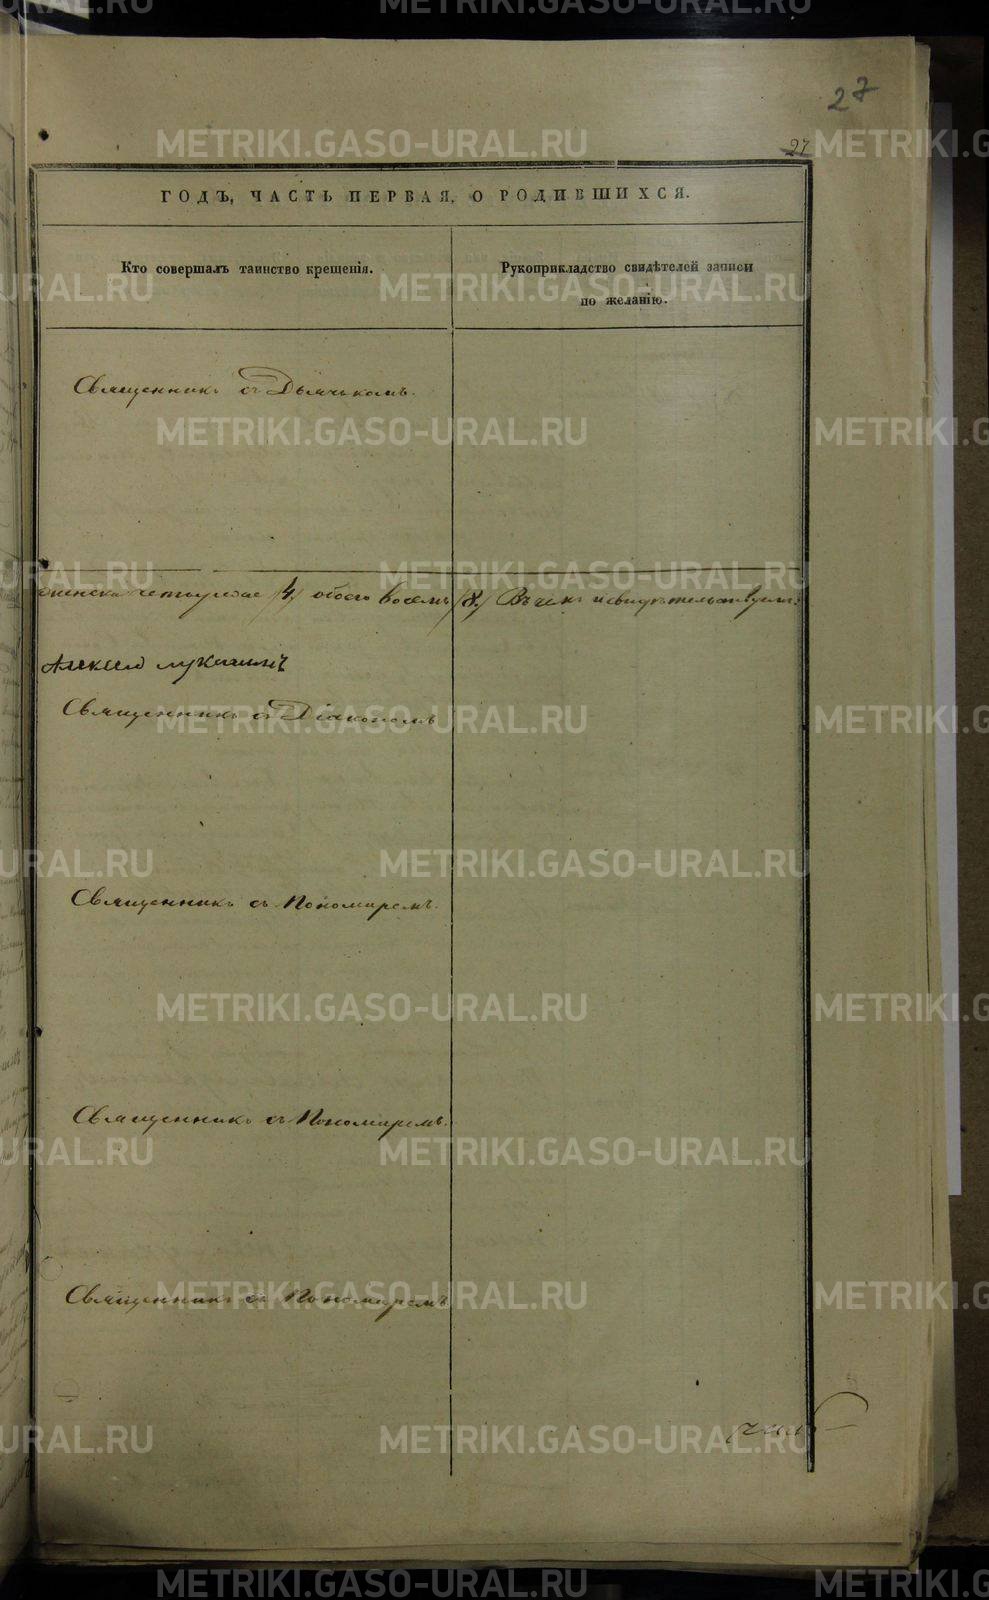 METRIKI.GASO-URAL.RU
27
27
ГОДЪ, ЧАСТЬ ПЕРВАЯ, О РОДИВШИХСЯ.
Кто совершалъ таинство крещенія.
Рукоприкладство свидѣтелей записи
по желанію.
Священникъ съ Дьячькомъ.
женска четыредае /4/ обоего восемь /8./ Въ чемъ и свидѣтельствуемъ:
Алексей Лукининъ
Священникъ съ Діакономъ
Священникъ съ Пономаремъ.
Священникъ съ Пономаремъ.
Священникъ съ Пономаремъ